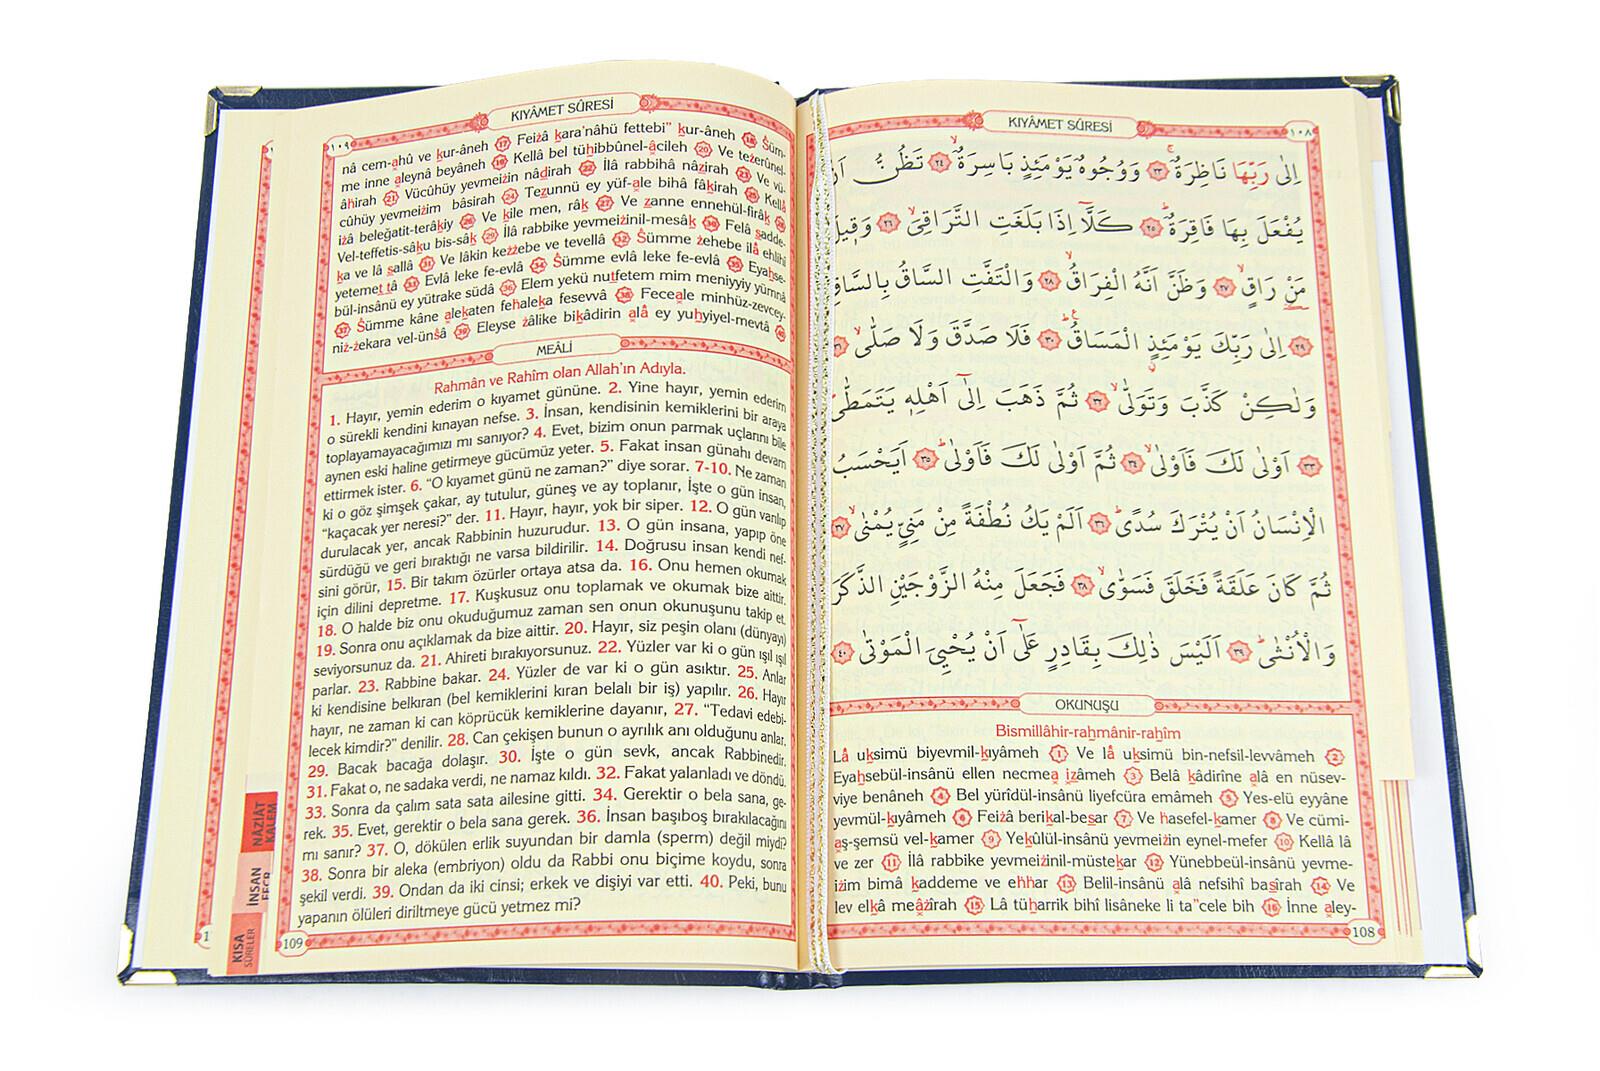 KIYÂMET SÛRESİ
١٠٨
اِلٰى رَبِّهَا نَاظِرَةٌۚ ﴿٢٣﴾ وَوُجُوهٌ يَوْمَئِذٍ بَاسِرَةٌۙ ﴿٢٤﴾ تَظُنُّ اَنْ
يُفْعَلَ بِهَا فَاقِرَةٌۜ ﴿٢٥﴾ كَلَّٓا اِذَا بَلَغَتِ التَّرَاقِيَۙ ﴿٢٦﴾ وَقٖيلَ
مَنْ رَاقٍۙ ﴿٢٧﴾ وَظَنَّ اَنَّهُ الْفِرَاقُۙ ﴿٢٨﴾ وَالْتَفَّتِ السَّاقُ بِالسَّاقِ
﴿٢٩﴾ اِلٰى رَبِّكَ يَوْمَئِذٍ الْمَسَاقُۜ ﴿٣٠﴾ فَلَا صَدَّقَ وَلَا صَلّٰىۙ ﴿٣١﴾
وَلٰكِنْ كَذَّبَ وَتَوَلّٰىۙ ﴿٣٢﴾ ثُمَّ ذَهَبَ اِلٰٓى اَهْلِهٖ يَتَمَطّٰى
﴿٣٣﴾ اَوْلٰى لَكَ فَاَوْلٰىۙ ﴿٣٤﴾ ثُمَّ اَوْلٰى لَكَ فَاَوْلٰىۜ ﴿٣٥﴾ اَيَحْسَبُ
الْاِنْسَانُ اَنْ يُتْرَكَ سُدًىۜ ﴿٣٦﴾ اَلَمْ يَكُ نُطْفَةً مِنْ مَنِيٍّ يُمْنٰىۙ ﴿٣٧﴾
ثُمَّ كَانَ عَلَقَةً فَخَلَقَ فَسَوّٰىۙ ﴿٣٨﴾ فَجَعَلَ مِنْهُ الزَّوْجَيْنِ الذَّكَرَ
وَالْاُنْثٰىۜ ﴿٣٩﴾ اَلَيْسَ ذٰلِكَ بِقَادِرٍ عَلٰٓى اَنْ يُحْيِيَ الْمَوْتٰى ﴿٤٠﴾
OKUNUŞU
Bismillâhir-rahmânir-rahîm
Lâ uksimü biyevmil-kıyâmeh 1 Ve lâ uksimü bin-nefsil-levvâmeh 2
Eyahsebül-insânü ellen necmea izâmeh 3 Belâ kâdirîne alâ en nüsev-
viye benâneh 4 Bel yürîdül-insânü liyefcüra emâmeh 5 Yes-elü eyyâne
yevmül-kıyâmeh 6 Feiżâ berikal-besar 7 Ve hasefel-kamer 8 Ve cümi-
aş-şemsü vel-kamer 9 Yekûlül-insânü yevmeiżin eynel-mefer 10 Kellâ lâ
ve zer 11 İlâ rabbike yevmeiżinil-müstekar 12 Yünebbeül-insânü yevme-
iżim bimâ kaddeme ve ehhar 13 Belil-insânü alâ nefsihî basîrah 14 Ve
lev elkâ meâżîrah 15 Lâ tüharrik bihî lisâneke li ta"cele bih 16 İnne aley-
108
KIYÂMET SÛRESİ
١٠٩
nâ cem-ahû ve kur-âneh 17 Feiżâ kara'nâhü fettebi" kur-âneh 18 Śüm-
me inne aleynâ beyâneh 19 Kellâ bel tühibbûnel-âcileh 20 Ve teżerûnel-
âhirah 21 Vücûhüy yevmeiżin nâdırah 22 İlâ rabbihâ nâzirah 23 Ve vü-
cûhüy yevmeiżim bâsirah 24 Tezunnü ey yüf-ale bihâ fâkirah 25 Kellâ
iżâ beleğatit-terâkıy 26 Ve kîle men, râk 27 Ve zanne ennehül-firâk 28
Vel-teffetis-sâku bis-sâk 29 İlâ rabbike yevmeiżinil-mesâk 30 Felâ sadde-
ka ve lâ sallâ 31 Ve lâkin keżżebe ve tevellâ 32 Śümme żehebe ilâ ehlihî
yetemettâ 33 Evlâ leke fe-evlâ 34 Śümme evlâ leke fe-evlâ 35 Eyahse-
bül-insânü ey yütrake südâ 36 Elem yekü nutfetem mim meniyyiy yümnâ
37 Śümme kâne alekaten fehaleka fesevvâ 38 Feceale minhüz-zevcey-
niż-żekara vel-ünśâ 39 Eleyse żâlike bikâdirin alâ ey yuhyiyel-mevtâ 40
MEÂLİ
Rahmân ve Rahîm olan Allah'ın Adıyla.
1. Hayır, yemin ederim o kıyamet gününe. 2. Yine hayır, yemin ederim
o sürekli kendini kınayan nefse. 3. İnsan, kendisinin kemiklerini bir araya
toplayamayacağımızı mı sanıyor? 4. Evet, bizim onun parmak uçlarını bile
aynen eski haline getirmeye gücümüz yeter. 5. Fakat insan günahı devam
ettirmek ister. 6. "O kıyamet günü ne zaman?" diye sorar. 7-10. Ne zaman
ki o göz şimşek çakar, ay tutulur, güneş ve ay toplanır, İşte o gün insan,
"kaçacak yer neresi?" der. 11. Hayır, hayır, yok bir siper. 12. O gün varılıp
durulacak yer, ancak Rabbinin huzurudur. 13. O gün insana, yapıp öne
sürdüğü ve geri bıraktığı ne varsa bildirilir. 14. Doğrusu insan kendi nef-
sini görür, 15. Bir takım özürler ortaya atsa da. 16. Onu hemen okumak
için dilini depretme. 17. Kuşkusuz onu toplamak ve okumak bize aittir.
18. O halde biz onu okuduğumuz zaman sen onun okunuşunu takip et.
19. Sonra onu açıklamak da bize aittir. 20. Hayır, siz peşin olanı (dünyayı)
seviyorsunuz da. 21. Ahireti bırakıyorsunuz. 22. Yüzler var ki o gün ışıl ışıl
parlar. 23. Rabbine bakar. 24. Yüzler de var ki o gün asıktır. 25. Anlar
ki kendisine belkıran (bel kemiklerini kıran belalı bir iş) yapılır. 26. Hayır
hayır, ne zaman ki can köprücük kemiklerine dayanır, 27. "Tedavi edebi-
lecek kimdir?" denilir. 28. Can çekişen bunun o ayrılık anı olduğunu anlar.
29. Bacak bacağa dolaşır. 30. İşte o gün sevk, ancak Rabbinedir.
31. Fakat o, ne sadaka verdi, ne namaz kıldı. 32. Fakat yalanladı ve döndü.
33. Sonra da çalım sata sata ailesine gitti. 34. Gerektir o bela sana, ge-
rek. 35. Evet, gerektir o bela sana gerek. 36. İnsan başıboş bırakılacağını
mı sanır? 37. O, dökülen erlik suyundan bir damla (sperm) değil miydi?
38. Sonra bir aleka (embriyon) oldu da Rabbi onu biçime koydu, sonra
şekil verdi. 39. Ondan da iki cinsi; erkek ve dişiyi var etti. 40. Peki, bunu
yapanın ölüleri diriltmeye gücü yetmez mi?
109
NÂZİÂT
KALEM
İNSAN
FECR
KISA
SÛRELER